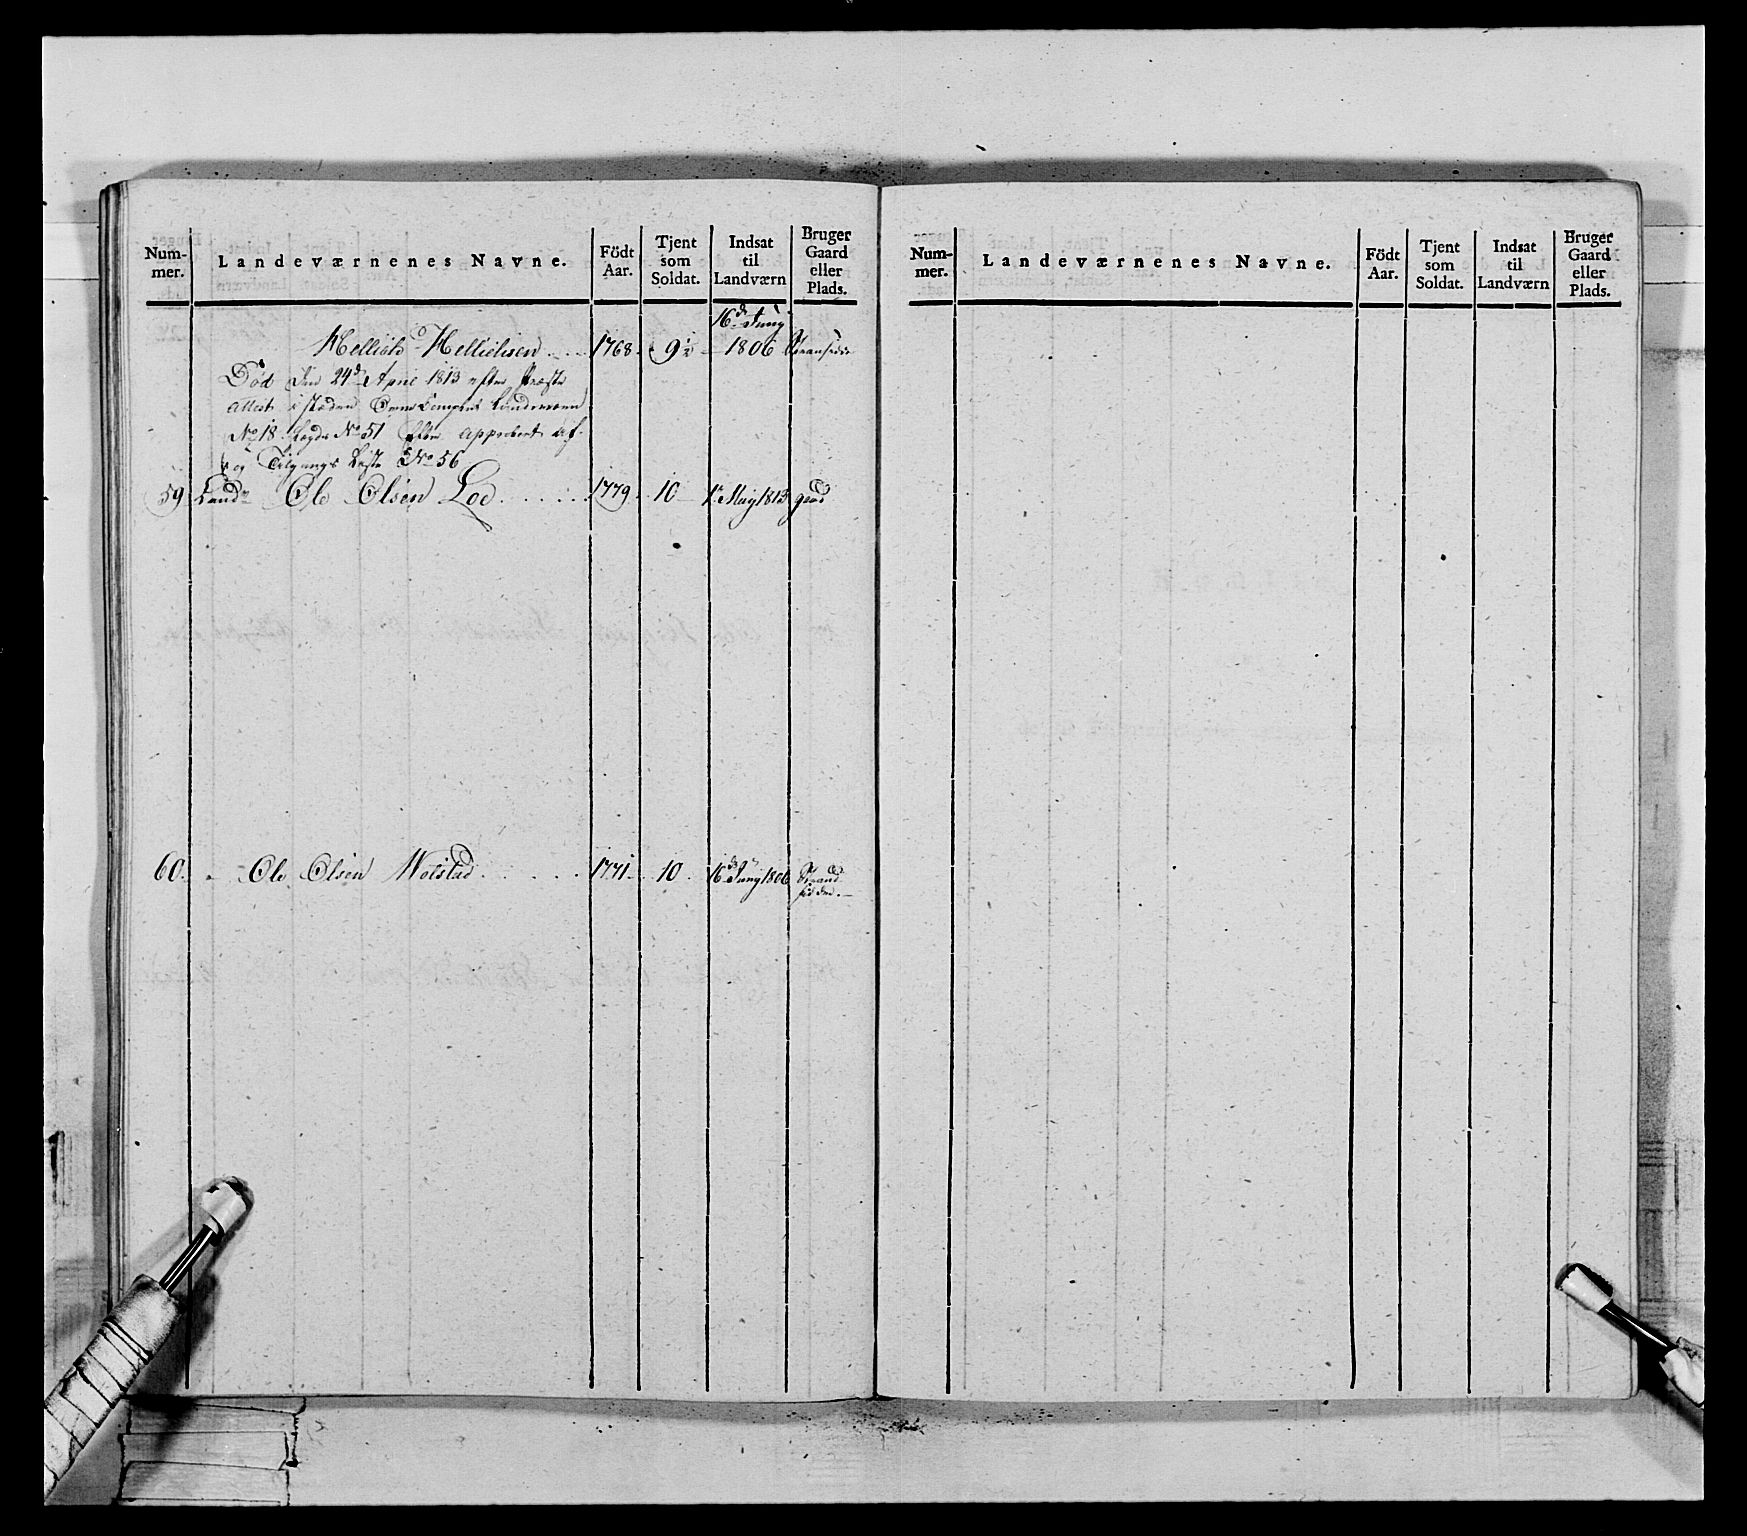 Num-
mer.
Landeværnenes Navne.
Födt
Aar.
Tjent
som
Soldat.
Indsat
til
Landværn
Bruger
Gaard
eller
Plads.
Helliek Helliehsen 1768 9½ 16de Juny 1806
Død den 24de April 1813 efter Præste
Attest i stæden Landeværn
No 18 Legde No 51 Efter Approbert af-
og Tilgangs Liste No 56
59 Land Ole Olsen Loe 1779 10 1te May 1813 Gaard
60. Ole Olsen Molstad 1771 10. 16de Juny 1806 Strand
sidder.
Num-
mer.
Landeværnenes Navne.
Födt
Aar.
Tjent
som
Soldat.
Indsat
til
Landværn
Bruger
Gaard
eller
Plads.